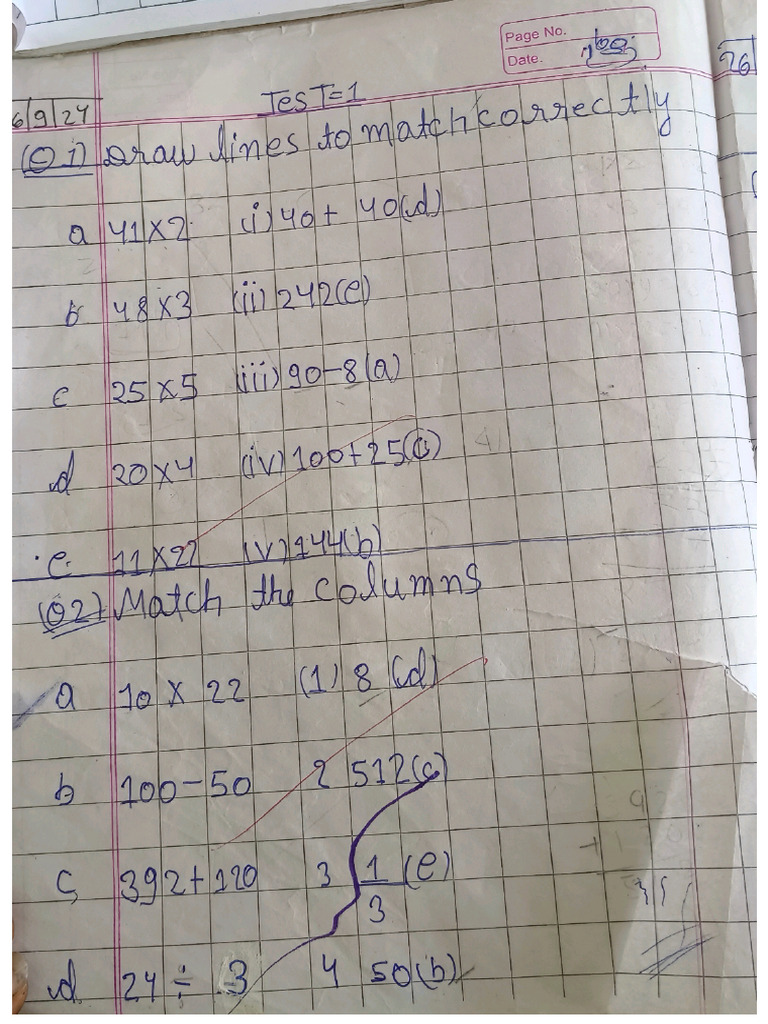 Page No.
Date.
26
6/9/24
TesT=1
(Q1) Draw lines to match correctly
a 41×2 (i) 40+ 40(d)
b 48×3 (ii) 242(e)
c 25×5 (iii) 90-8(a)
d 20×4 (iv) 100+25(c)
e. 11×22 (v) 144(b)
(Q2) Match the columns
a 10 × 22 (1) 8 (d)
b 100-50 2 512(c)
c 392+120 3 1/3 (e)
d 24 ÷ 3 4 50(b)